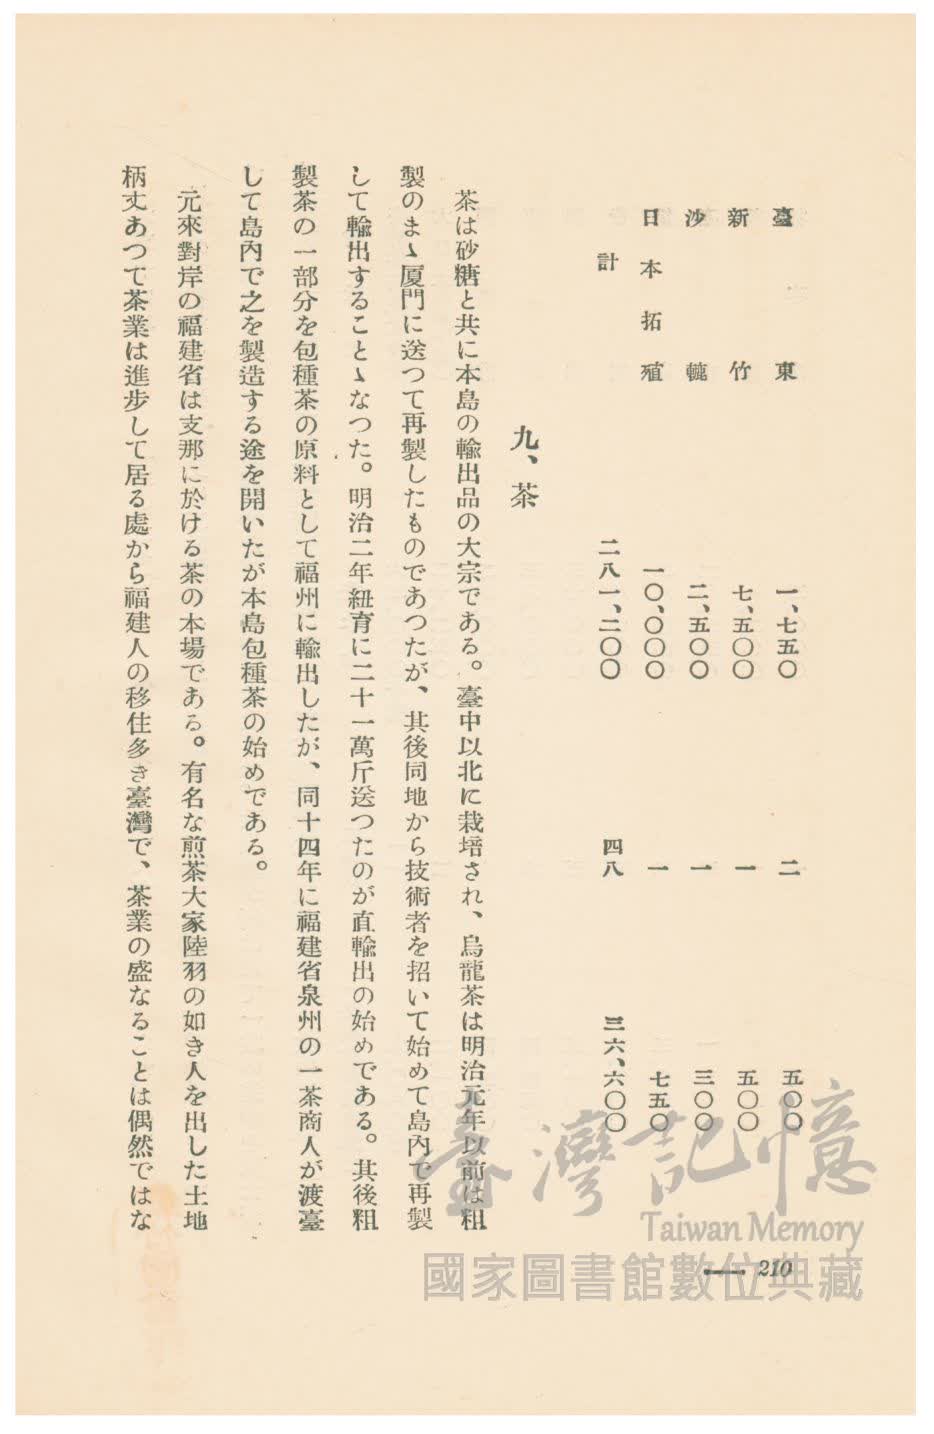 臺東 一、七五〇 二 五〇〇
新竹 七、五〇〇 一 五〇〇
沙轆 二、五〇〇 一 三〇〇
日本拓殖 一〇、〇〇〇 一 七五〇
計 二八一、二〇〇 四八 三六、六〇〇
九、茶
茶は砂糖と共に本島の輸出品の大宗である。臺中以北に栽培され、烏龍茶は明治元年以前は粗
製のまゝ厦門に送つて再製したものであつたが、其後同地から技術者を招いて始めて島內で再製
して輸出することゝなつた。明治二年紐育に二十一萬斤送つたのが直輸出の始めである。其後粗
製茶の一部分を包種茶の原料として福州に輸出したが、同十四年に福建省泉州の一茶商人が渡臺
して島內で之を製造する途を開いたが本島包種茶の始めである。
元來對岸の福建省は支那に於ける茶の本場である。有名な煎茶大家陸羽の如き人を出した土地
柄丈あつて茶業は進步して居る處から福建人の移住多き臺灣で、茶業の盛なることは偶然ではな
210
臺灣記憶
Taiwan Memory
國家圖書館數位典藏